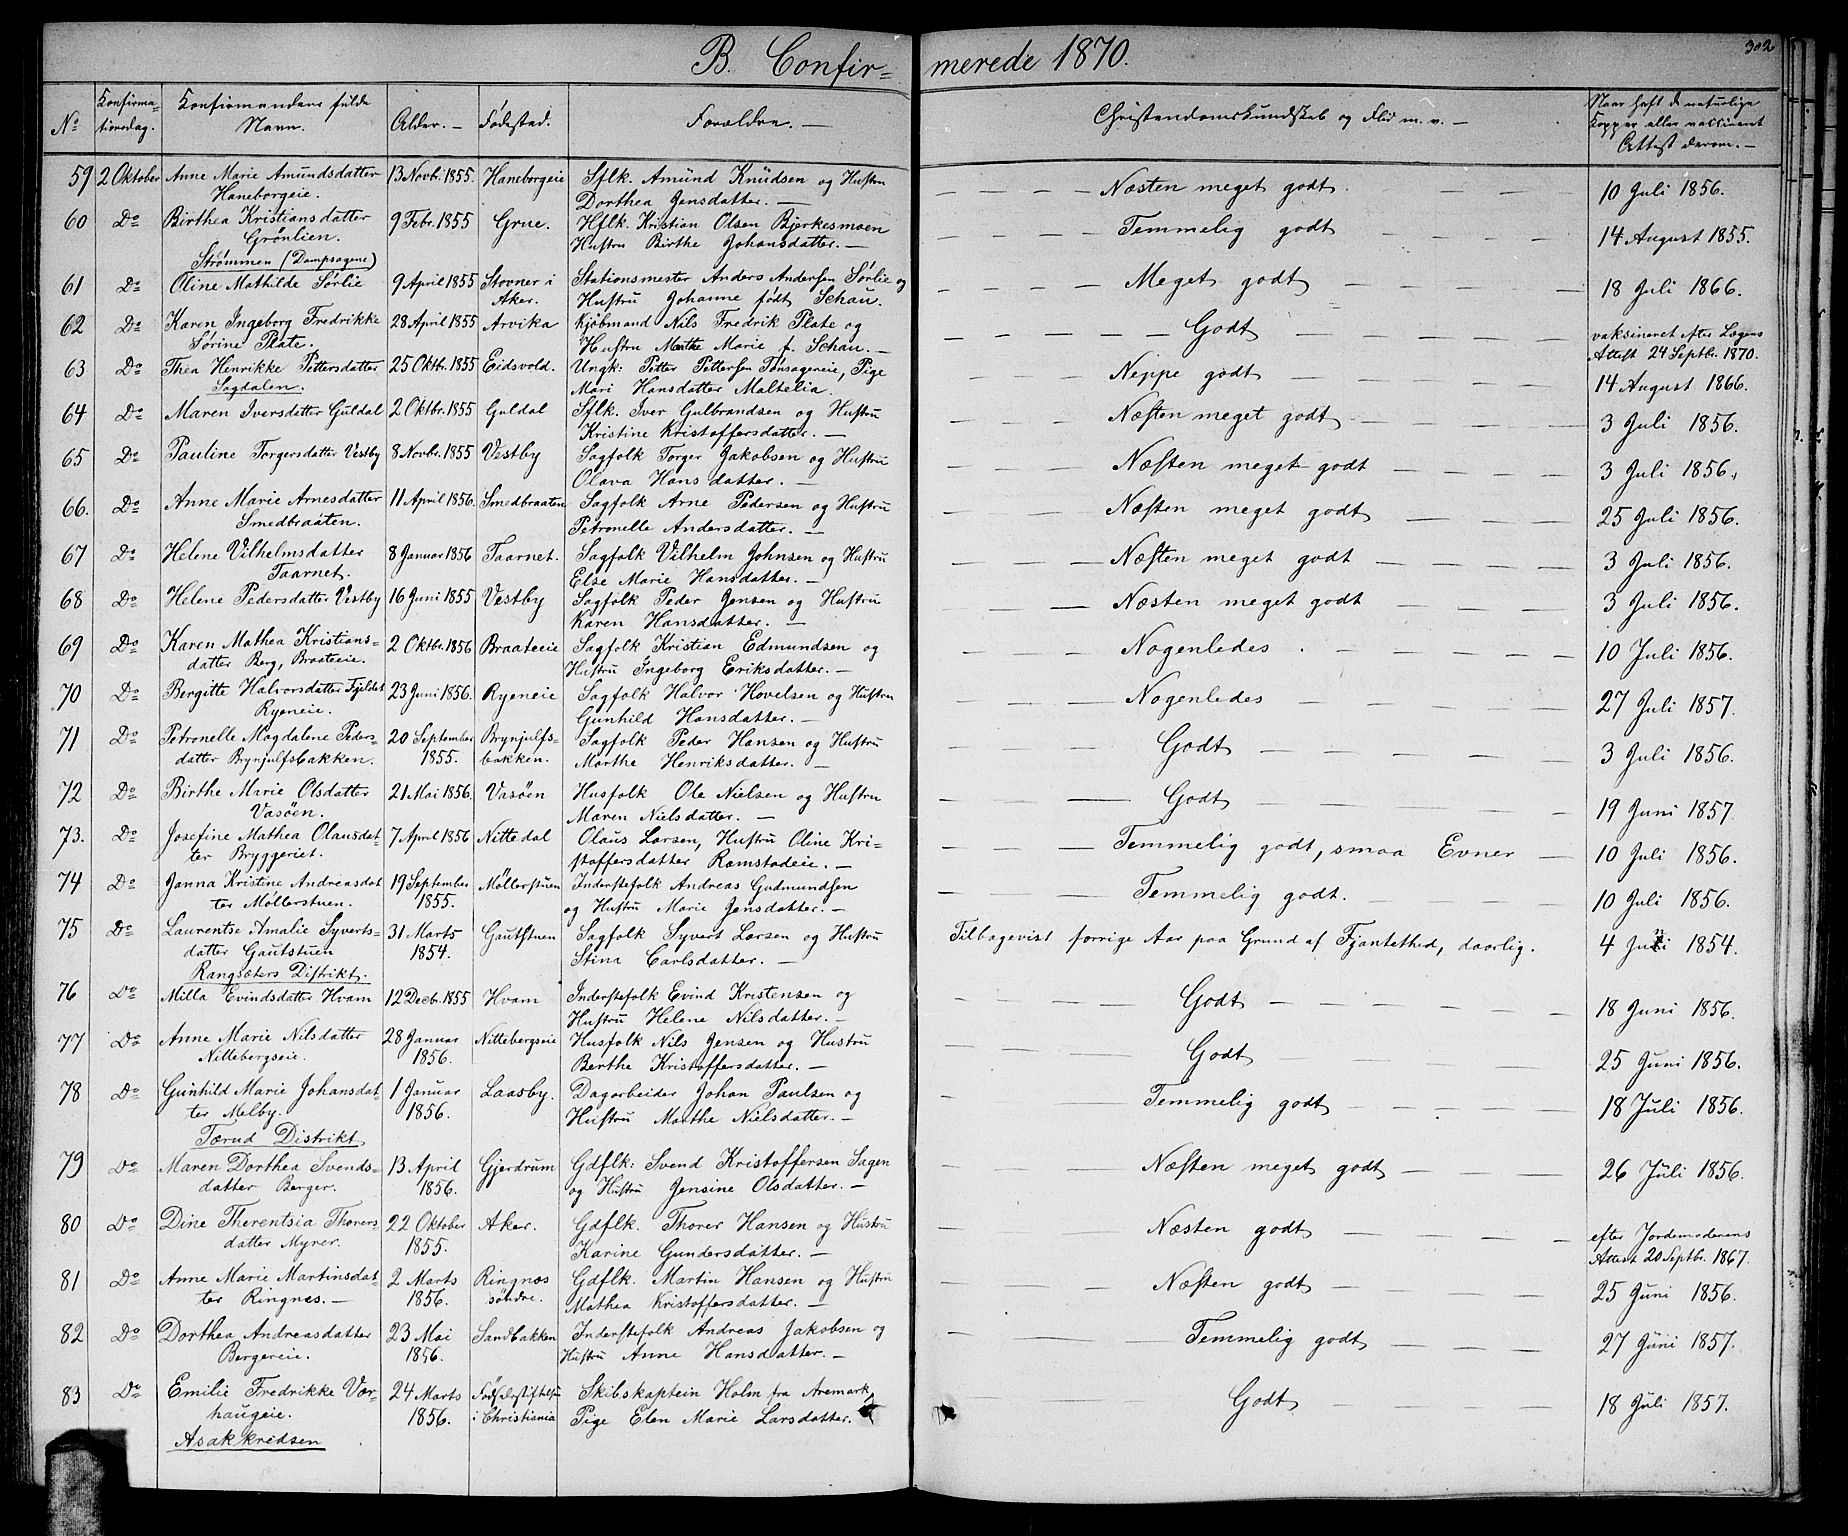 B. Confirmerede 1870.
302
No
Konfirmationsdag.
Konfirmandens fulde Navn.
Alder. —
Fødested.
Forældre. —
Christendomskundskab og Flid m. v. —
Naar haft de naturlige Kopper eller vaksineret Attest derom. —
59 2 Oktober Anne Marie Amundsdatter 13 Novbr. 1855. Haneborgeie Sflk. Amund Knudsen og Hustru — Næsten meget godt. — 10 Juli 1856.
Haneborgeie. Dorthea Jensdatter. —
60 Do Birthea Kristiansdatter 9 Febr. 1855 Grue. Hflk. Kristian Olsen Bjerkesmoen — Temmelig godt — 14 August 1855.
Grønlien. Hustru Birthe Johansdatter. —
Strømmen (Dampsagene)
61 Do Oline Mathilde Sørlie 9 April 1855 Stovner i Stationsmester Anders Andersen Sørlie og — Meget godt — 18 Juli 1866.
Aker. Hustru Johanne født Schau.
62 Do Karen Ingeborg Fredrikke 28 April 1855 Arvika Kjøbmand Nils Fredrik Plate og — Godt — vaksineret efter Lægens
Sørine Plate. Hustru Marthe Marie f. Schau. — Attest 24 Septbr. 1870.
63 Do Thea Henrikke Pettersdatter 25 Oktbr. 1855 Eidsvold. Ungk: Petter Pettersen Tønsageeie, Pige — Neppe godt — 14 August 1866.
Sagdalen. Mari Hansdatter Maltelia.
64 Do Maren Iversdatter Guldal 2 Oktbr. 1855 Guldal Sflk. Iver Gulbrandsen og Hustru — Næsten meget godt — 3 Juli 1856.
Kristine Kristoffersdatter. —
65 Do Pauline Torgersdatter Vestby 8 Novbr. 1855 Vestby Sagfolk Torger Jakobsen og Hustru — Næsten meget godt — 3 Juli 1856.
Olava Hansdatter. —
66. Do Anne Marie Arnesdatter 11 April 1856. Smedbraaten Sagfolk Arne Pedersen og Hustru — Næsten meget godt — 25 Juli 1856.
Smedbraaten. Petronelle Andersdatter. —
67 Do Helene Vilhelmsdatter 8 Januar 1856 Taarnet. Sagfolk Vilhelm Johnsen og Hustru — Næsten meget godt — 3 Juli 1856.
Taarnet. Else Marie Hansdatter. —
68 Do Helene Pedersdatter Vestby 16 Juni 1855 Vestby Sagfolk Peder Jensen og Hustru — Næsten meget godt — 3 Juli 1856.
Karen Hansdatter. —
69 Do Karen Mathea Kristians= 2 Oktbr. 1856 Braateeie Sagfolk Kristian Edmundsen og — Nogenledes. — 10 Juli 1856.
datter Berg, Braateeie. Hustru Ingeborg Eriksdatter. —
70 Do Bergitte Halvorsdatter Fjeldet 23 Juni 1856. Ryeneie Sagfolk Halvor Hovelsen og Hustru — Nogenledes — 27 Juli 1857.
Ryeneie. Gunhild Hansdatter. —
71 Do Petronelle Magdalene Peders= 20 September Brynjulfs= Sagfolk Peder Hansen og Hustru — Godt — 3 Juli 1856.
datter Brynjulfsbakken. 1855. bakken. Marthe Henriksdatter. —
72 Do Birthe Marie Olsdatter 21 Mai 1856. Vasøen Husfolk Ole Nielsen og Hustru — Godt — 19 Juni 1857.
Vasøen. Maren Nielsdatter. —
73. Do Josefine Mathea Olausdat= 7 April 1856 Nittedal Olaus Larsen, Hustru Oline Kri= — Temmelig godt, smaa Evner — 10 Juli 1856.
ter Bryggeriet. stoffersdatter Ramstadeie. —
74 Do Janna Kristine Andreasdat 19 September Møllerstuen Inderstefolk Andreas Gudmundsen — Temmelig godt. — 10 Juli 1856.
ter Møllerstuen. 1855. og Hustru Marie Jensdatter. —
75 Do Laurentse Amalie Syverts= 31 Marts Gautstuen Sagfolk Syvert Larsen og Hustru Tilbagevist forrige Aar paa Grund af Fjantethed, daarlig. 4 Juni 1854.
datter Gautstuen 1854. Stina Carlsdatter. —
Rangsæters Distrikt.
76 Do Milla Evindsdatter Hvam 12 Decbr. 1855 Hvam Inderstefolk Evind Kristensen og — Godt — 18 Juni 1856.
Hustru Helene Nilsdatter. —
77 Do Anne Marie Nilsdatter 28 Januar Nittebergseie Husfolk Nils Jensen og Hustru — Godt — 25 Juni 1856.
Nittebergseie. 1856. Berthe Kristoffersdatter. —
78 Do Gunhild Marie Johansdat= 1 Januar Laasby. Dagarbeider Johan Paulsen og — Temmelig godt — 18 Juli 1856.
ter Melby. 1856. Hustru Marthe Nielsdatter. —
Tærud Distrikt
79 Do Maren Dorthea Svends= 13 April Gjerdrum Gdflk: Svend Kristoffersen Sagen — Næsten meget godt — 26 Juli 1856.
datter Berger. 1856. og Hustru Jensine Olsdatter. —
80 Do Dine Therentsia Thorers= 22 Oktober Aker. Gdflk. Thorer Hansen og Hustru — Næsten godt — efter Jordemoderens
datter Myrer. 1855. Karine Gundersdatter. — Attest 20 Septbr. 1867.
81 Do Anne Marie Martinsdat= 2 Marts Ringnes Gdflk. Martin Hansen og Hustru — Næsten godt — 25 Juni 1856.
ter Ringnes. — 1856. søndre. Mathea Kristoffersdatter. —
82 Do Dorthea Andreasdatter 23 Mai Sandbakken Inderstefolk Andreas Jakobsen og — Temmelig godt — 27 Juni 1857.
Bergereie. 1856. Hustru Anne Hansdatter. —
83 Do Emilie Fredrikke Var= 24 Marts Fødselsstiftelsen Skibskaptein Holm fra Aremark, — Godt — 18 Juli 1857.
haugeie. 1856. i Christiania Pige Elen Marie Larsdatter.
Asakkredsen